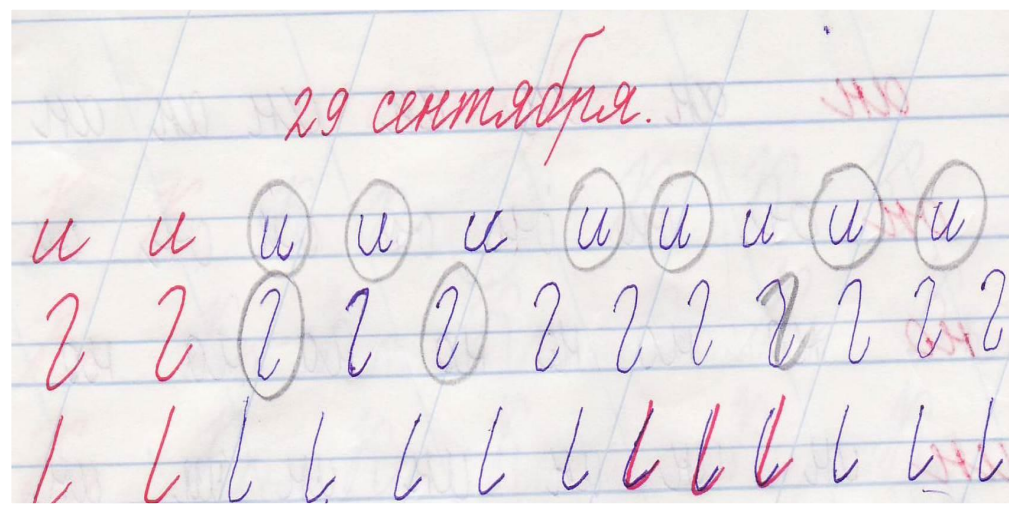 29 сентября.
и и и и и и и и и и